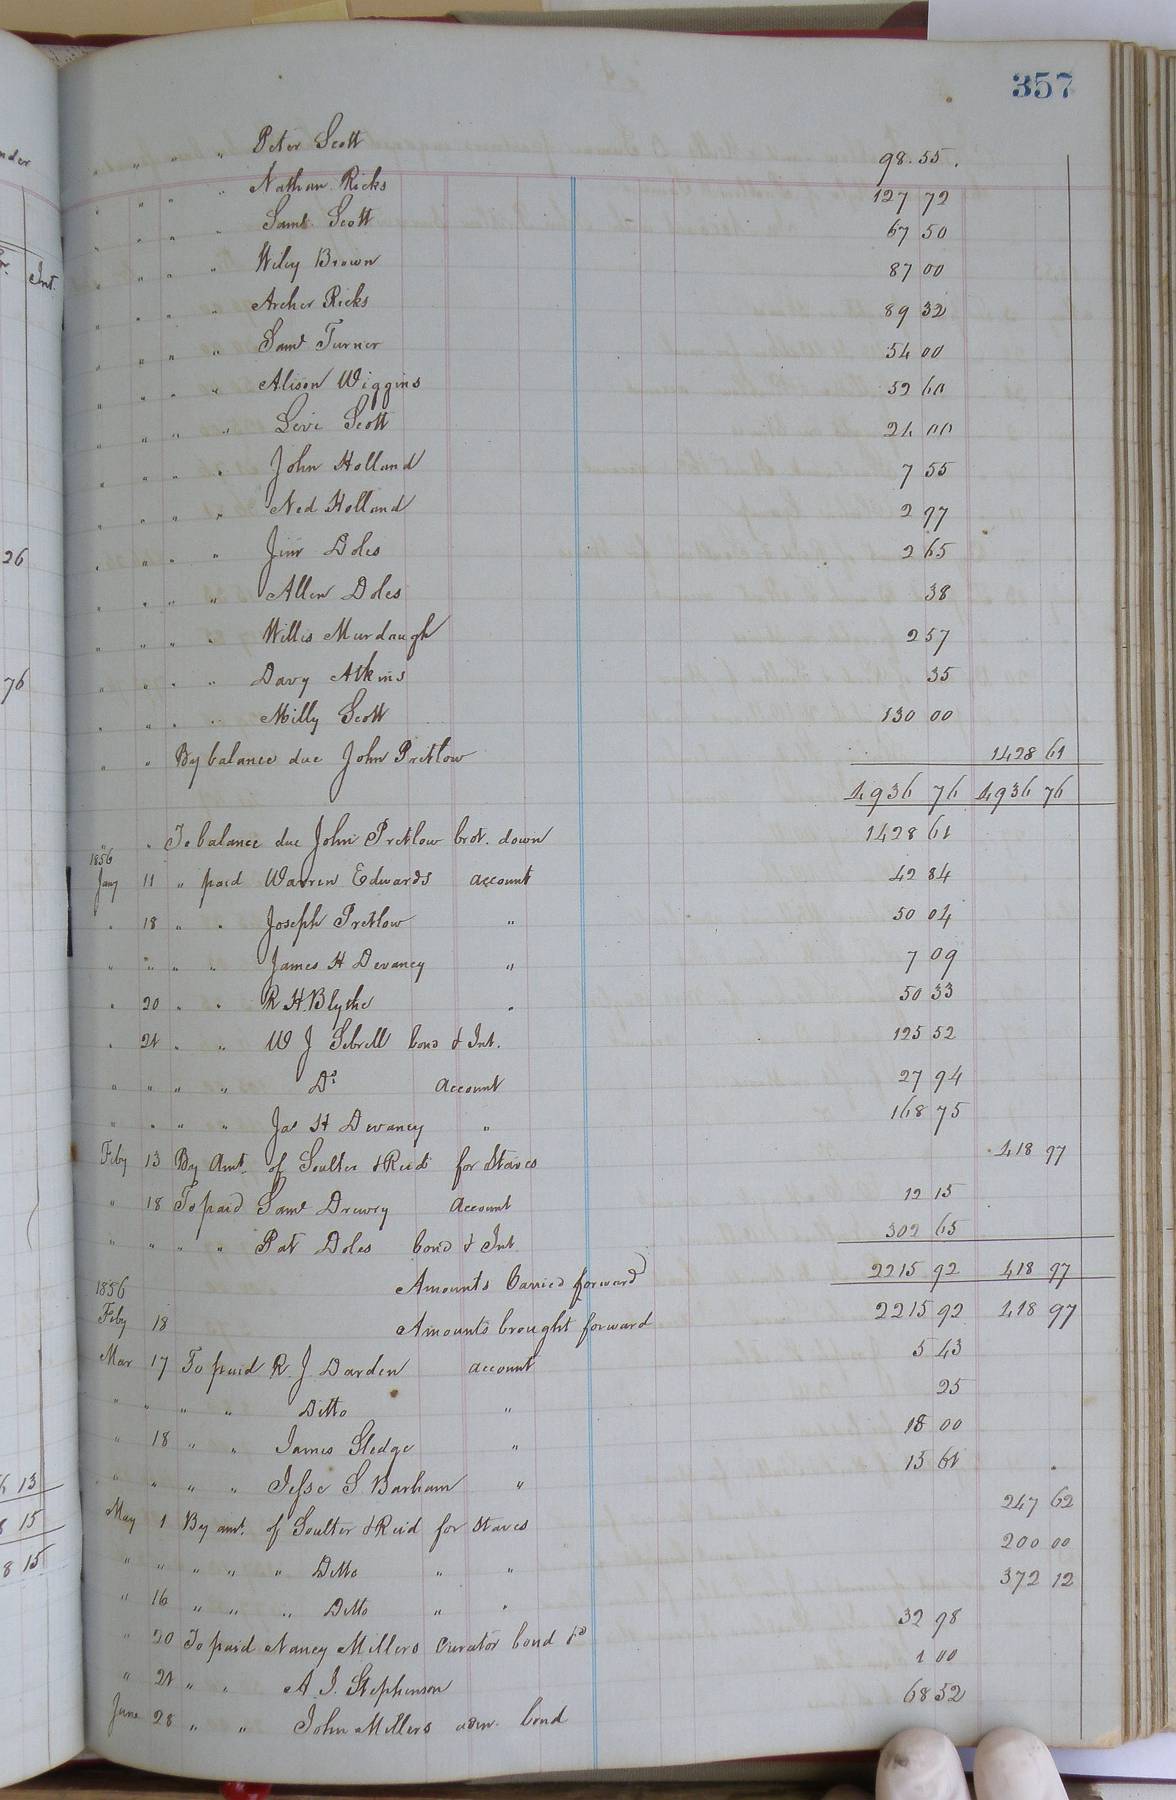 357
" " " Peter Scott 98.55.
" " " " Nathan Ricks 127 72
" " " " Saml. Scott 67 50
" " " " Wiley Brown 87 00
" " " " Archer Ricks 89 32
" " " " Saml Turner 54 00
" " " " Alison Wiggins 52 60
" " " " Levi Scott 24 00
" " " " John Holland 7 55
" " " " Ned Holland 2 97
" " " " Jim Doles 2 65
" " " " Allen Doles 38
" " " " Willis Murdaugh 2 57
" " " " Davy Atkins 35
" " " " Milly Scott 130 00
" " By balance due John Pretlow 1428 61
4936 76 4936 76
" " To balance due John Pretlow brot. down 1428 61
1856
Jany 11 " paid Warren Edwards account 42 84
" 18 " " Joseph Pretlow " 50 04
" " " " James H Devaney " 7 09
" 20 " " R H Blythe " 50 33
" 21 " " W J Sebrell bond & Int. 125 52
" " " " Do account 27 94
" " " " Jas H Devaney " 168 75
Feby 13 By Amt. of Soulter & Reid for Staves 418 97
" 18 To paid Saml Drewry Account 12 15
" " " " Pat Doles bond & Int 302 65
Amounts Carried forward 2215 92 418 97
1856
Feby 18 Amounts brought forward 2215 92 418 97
Mar 17 To paid R. J. Darden account 5 43
" " " " Ditto " 25
" 18 " " James Sledge " 18 00
" " " " Jesse S Barham " 13 61
May 1 By amt. of Soulter & Reid for Staves 247 62
" " " " " Ditto " " 200 00
" 16 " " " Ditto " " 372 12
" 20 To paid Nancy Millers Curator bond &c 32 98
" 21 " " A. J. Stephenson 1 00
June 28 " " John Millers adm. bond 68 52
nder
Int.
26
76
13
15
8 15